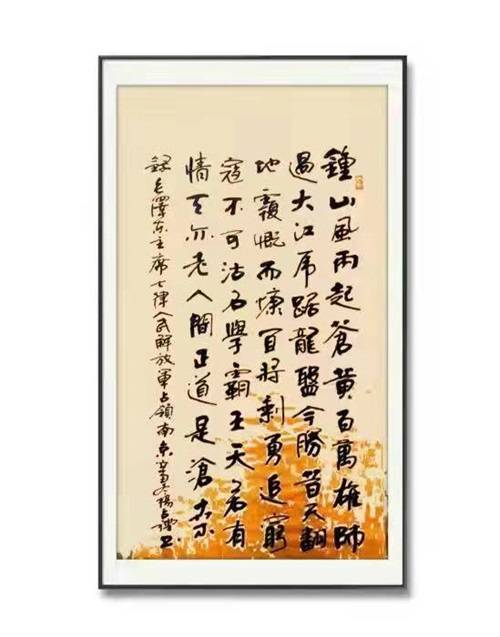 鍾山風雨起蒼黃百萬雄師
過大江虎踞龍盤今勝昔天翻
地覆慨而慷宜將剩勇追窮
寇不可沽名學霸王天若有
情天亦老人間正道是滄桑
錄毛澤东主席七律人民解放軍占領南京辛丑冬楊占